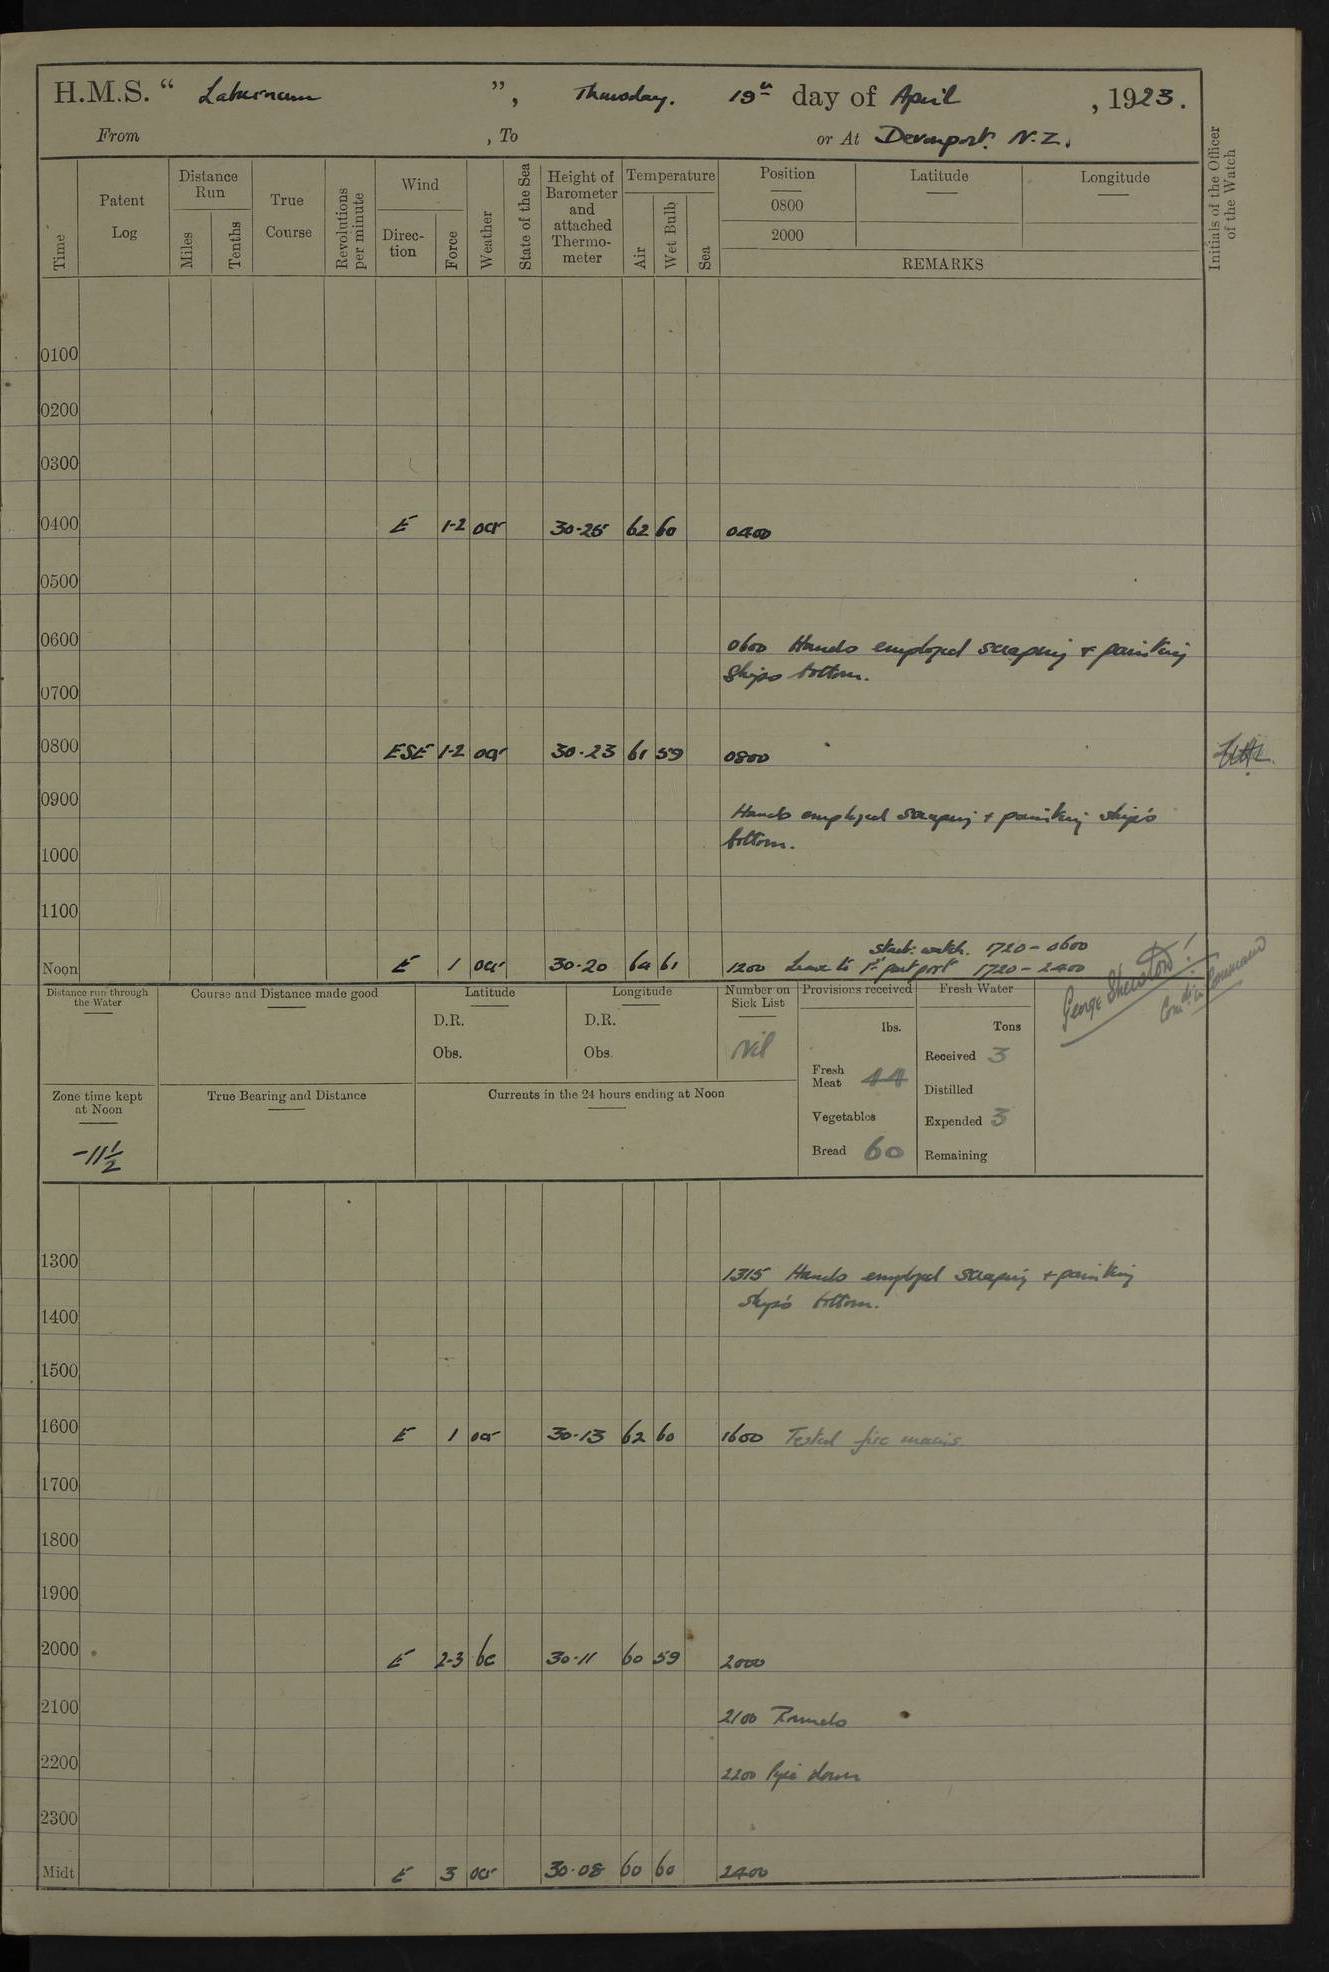 H.M.S. " Laburnum ", Thursday. 19th day of April, 1923.
From , To or At Devonport. N.Z.
Time
Patent Log
Distance Run
Miles
Tenths
True Course
Revolutions per minute
Wind
Direc-tion
Force
Weather
State of the Sea
Height of Barometer and attached Thermo-meter
Temperature
Air
Wet Bulb
Sea
Position
0800
2000
Latitude
Longitude
REMARKS
Initials of the Officer of the Watch
0100
0200
0300
0400 E 1-2 or 30·25 62 60 0400
0500
0600 0600 Hands employed scraping + painking
Ships bottom.
0700
0800 ESE 1-2 or 30·23 61 59 0800
0900 Hands employed scraping + painting ship's
bottom.
1000
1100
Starb: watch. 1720 - 0600
Noon E 1 or 30·20 64 61 1200 Leave to 1st part port 1720 - 2400
Distance run through the Water
Course and Distance made good
Latitude
D.R.
Obs.
Longitude
D.R.
Obs.
Number on Sick List
Nil
Provisions received
lbs.
Fresh Meat 44
Vegetables
Bread 60
Fresh Water
Tons
Received 3
Distilled
Expended 3
Remaining
George
in Command
Zone time kept at Noon
-11½
True Bearing and Distance
Currents in the 24 hours ending at Noon
1300 1315 Hands employed scraping + painting
ship's bottom.
1400
1500
1600 E 1 or 30·13 62 60 1600 Tested fire mains
1700
1800
1900
2000 E 2-3 bc 30·11 60 59 2000
2100 2100 Rounds
2200 2200 Pipe down
2300
Midt E 3 or 30·08 60 60 2400